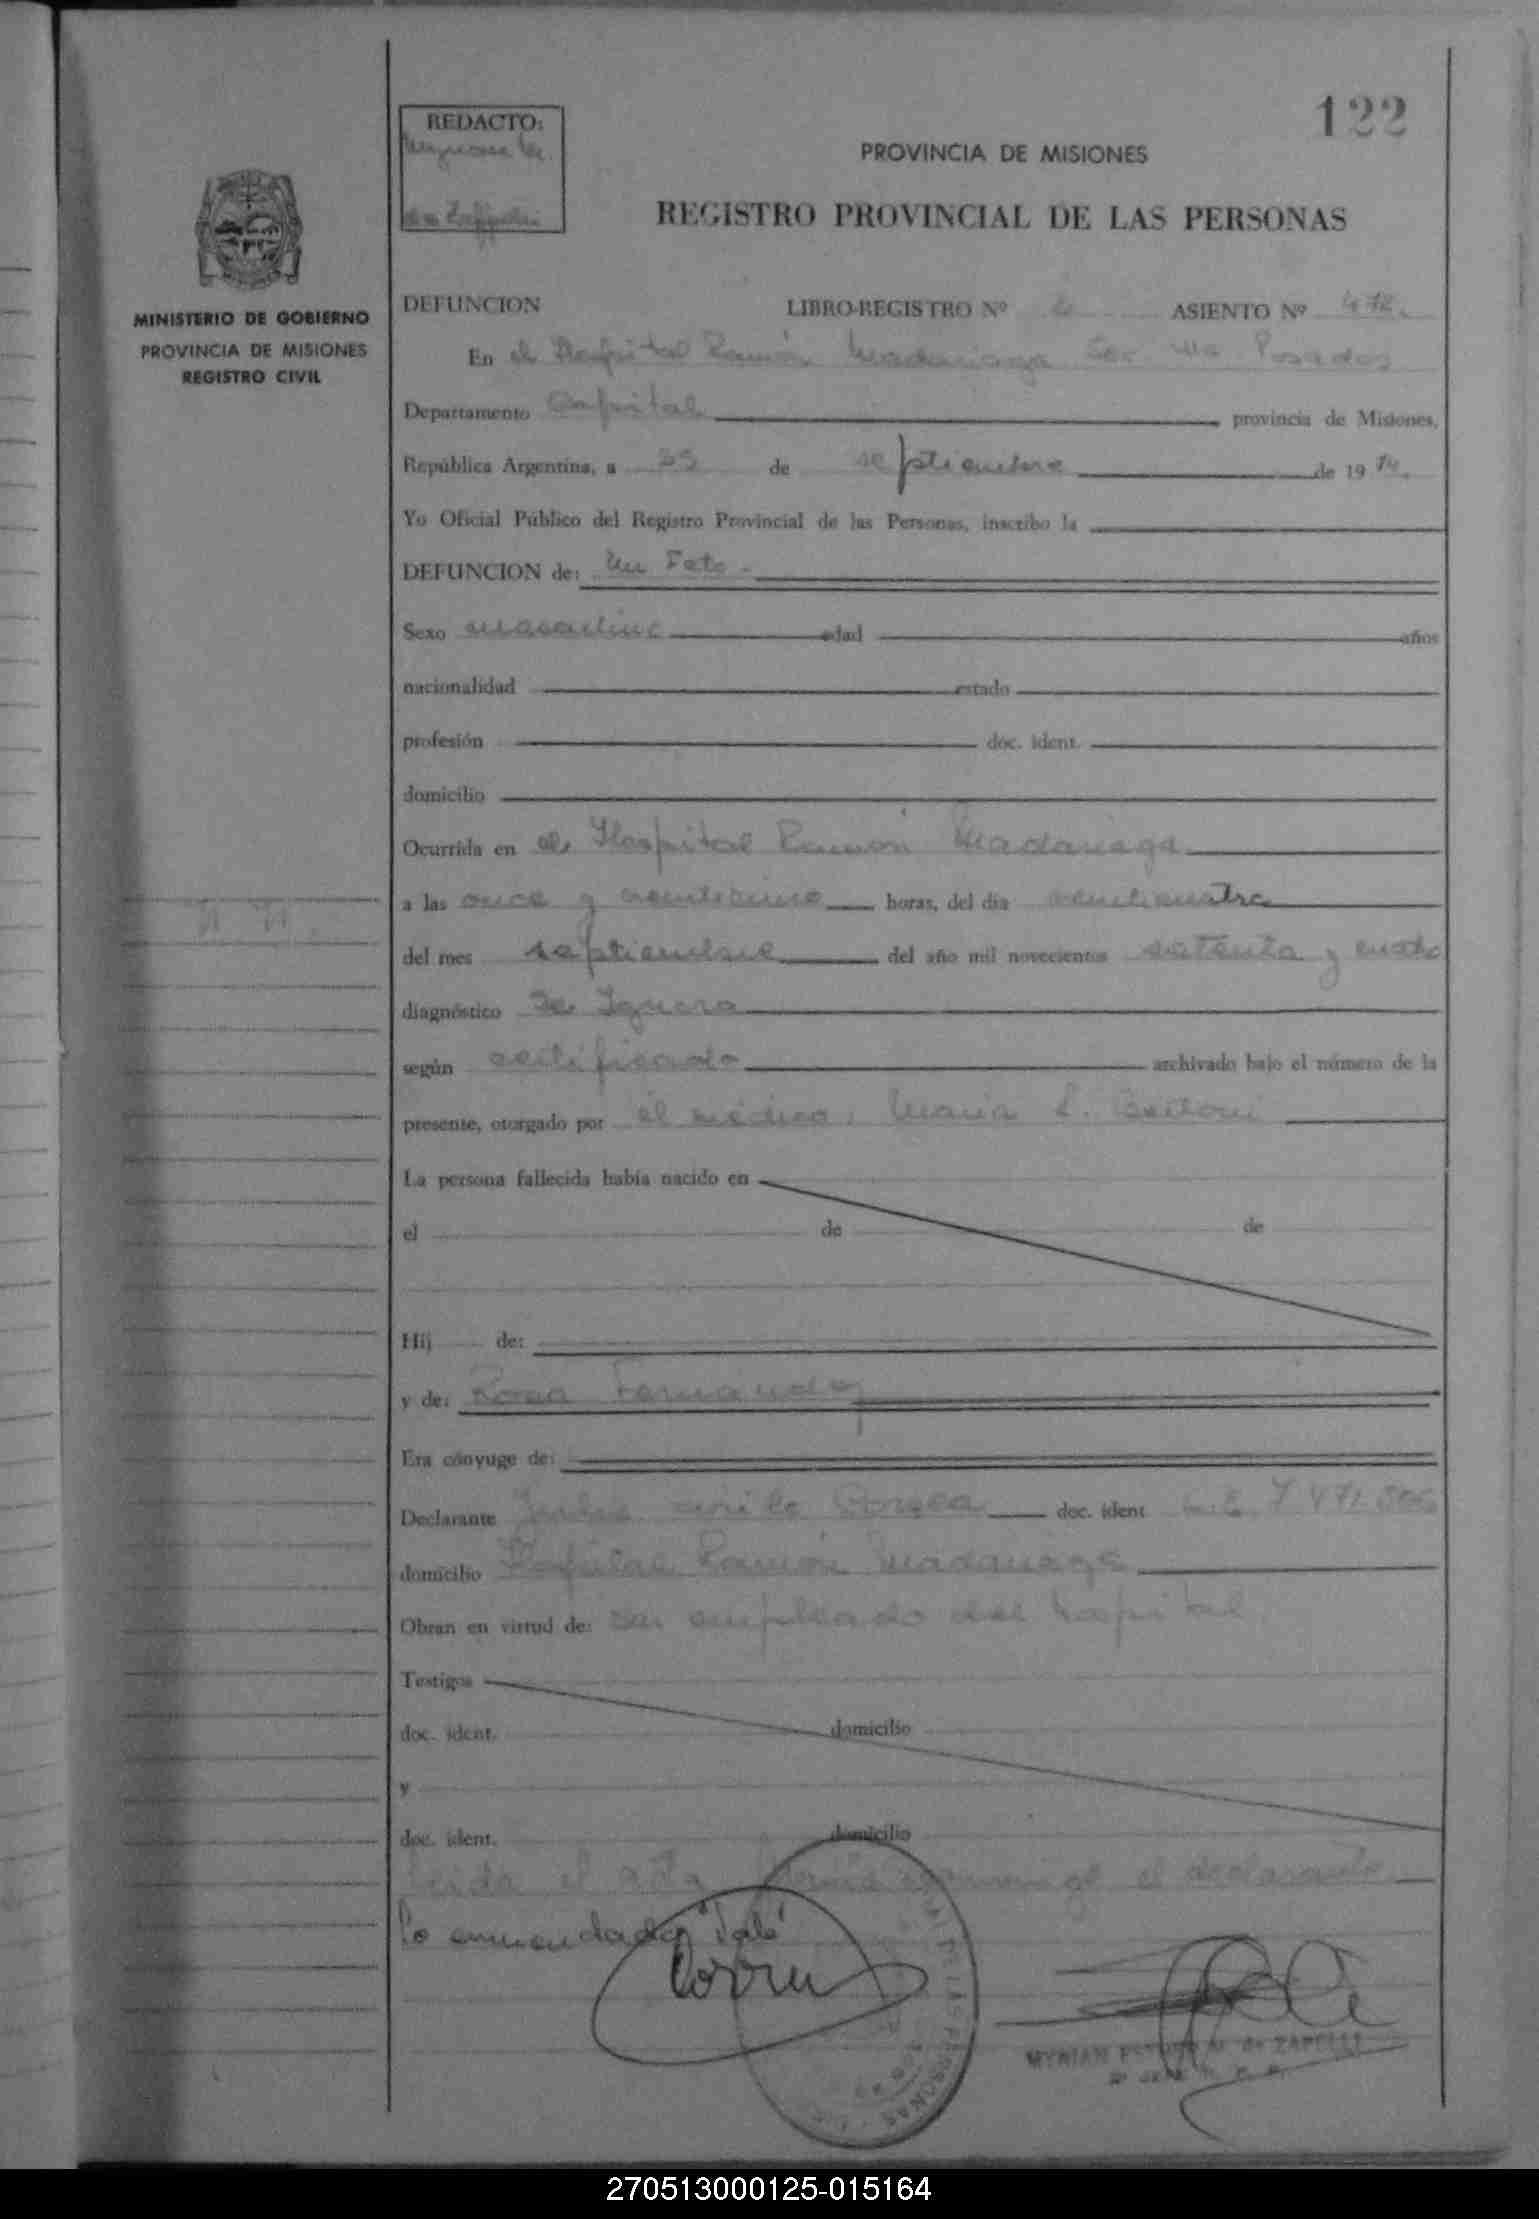 122
REDACTO:
PROVINCIA DE MISIONES
REGISTRO PROVINCIAL DE LAS PERSONAS
MINISTERIO DE GOBIERNO
PROVINCIA DE MISIONES
REGISTRO CIVIL
DEFUNCION LIBRO-REGISTRO Nº ASIENTO Nº 472.
En el Hospital Ramón Madariaga Posadas
Departamento Capital provincia de Misiones,
República Argentina, a 25 de septiembre de 1974.
Yo Oficial Público del Registro Provincial de las Personas, inscribo la
DEFUNCION de: Un Feto.
Sexo masculino edad años
nacionalidad estado
profesión doc. ident.
domicilio
Ocurrida en el Hospital Ramón Madariaga
a las once y veinticinco horas, del día veinticuatro
N N.
del mes septiembre del año mil novecientos setenta y cuatro
diagnóstico Se Ignora
según certificado archivado bajo el número de la
presente, otorgado por el médico, María
La persona fallecida había nacido en
el de de
Hij de:
y de: Rosa Fernandez
Era cónyuge de:
Declarante Correa doc. ident
domicilio Hospital Ramón Madariaga
Obran en virtud de: ser empleado del hospital.
Testigos
doc. ident. domicilio
y
doc. ident. domicilio
Leida el acta firma conmigo el declarante
Lo enmendado "Vale"
DE LAS PERSONAS
270513000125-015164